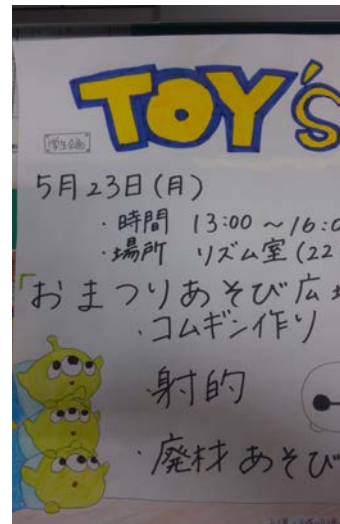 TOY's
学生企画
5月23日(月)
・時間 13:00 ~16:0
・場所 リズム室(22
「おまつりあそび広場
・コムギン作り
・射的
・廃材あそび